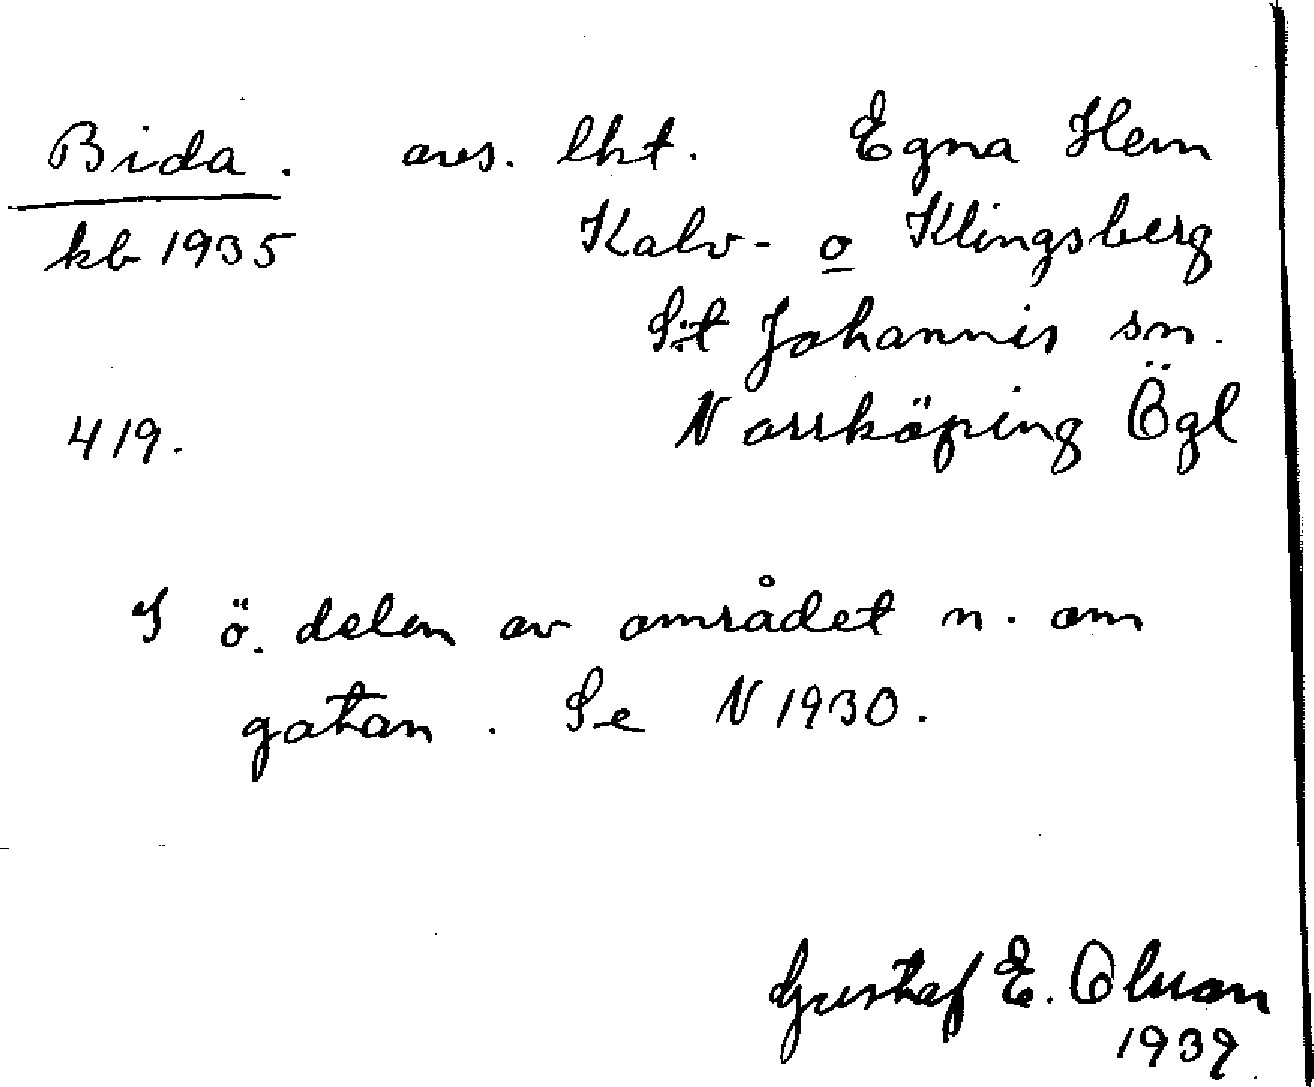 Bida. avs. lht. Egna Hem
kb 1935 Kalv- o Klingsberg
S:t Johannis sn.
419. Norrköping Ögl
I ö. delen av området n. om
gatan. Se N 1930.
Gustaf E. Olsson
1939